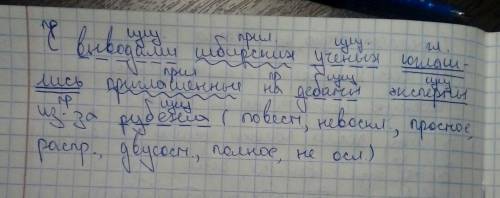 пр сущ прил. сущ. гл.
С выводами сибирских ученых соглаш-
лись приглашенные на дебаты эксперты
прил пр сущ сущ
из-за рубежа (повест, невоскл, простое,
пр сущ
распр., двусост., полное, не осл)